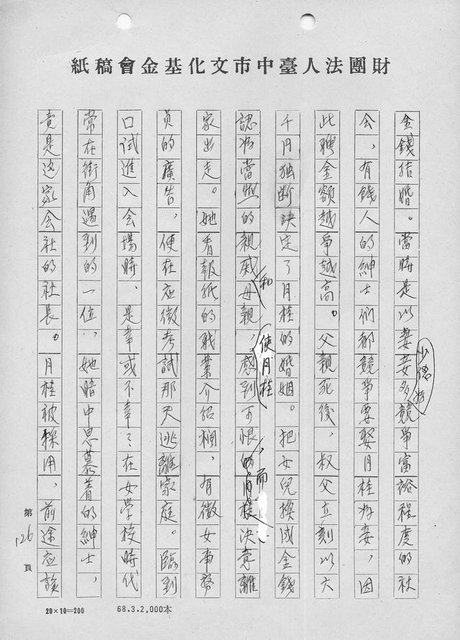 財團法人臺中市文化基金會稿紙
金錢結婚。當時是以妻妾多競爭富裕程度的社
會,有錢人的紳士們都競爭要娶月桂為妾,因
此聘金額越爭越高。父親死後,叔父立刻以大
千円独断決定了月桂的婚姻。把女兒換成金錢
認為當然的親戚和母親,使月桂感到可恨,而決意離
家出走。她看報紙的職業介紹欄,有徵女事務
員的廣告,便在应徵考試那天逃離家庭。臨到
口試進入会場時,是幸或不幸?在女学校時代
常在街角遇到的一位,她暗中思慕着的紳士,
竟是这家会社的社長。月桂被採用,前途应該
第126頁
20×10=200
68.3.2,000本